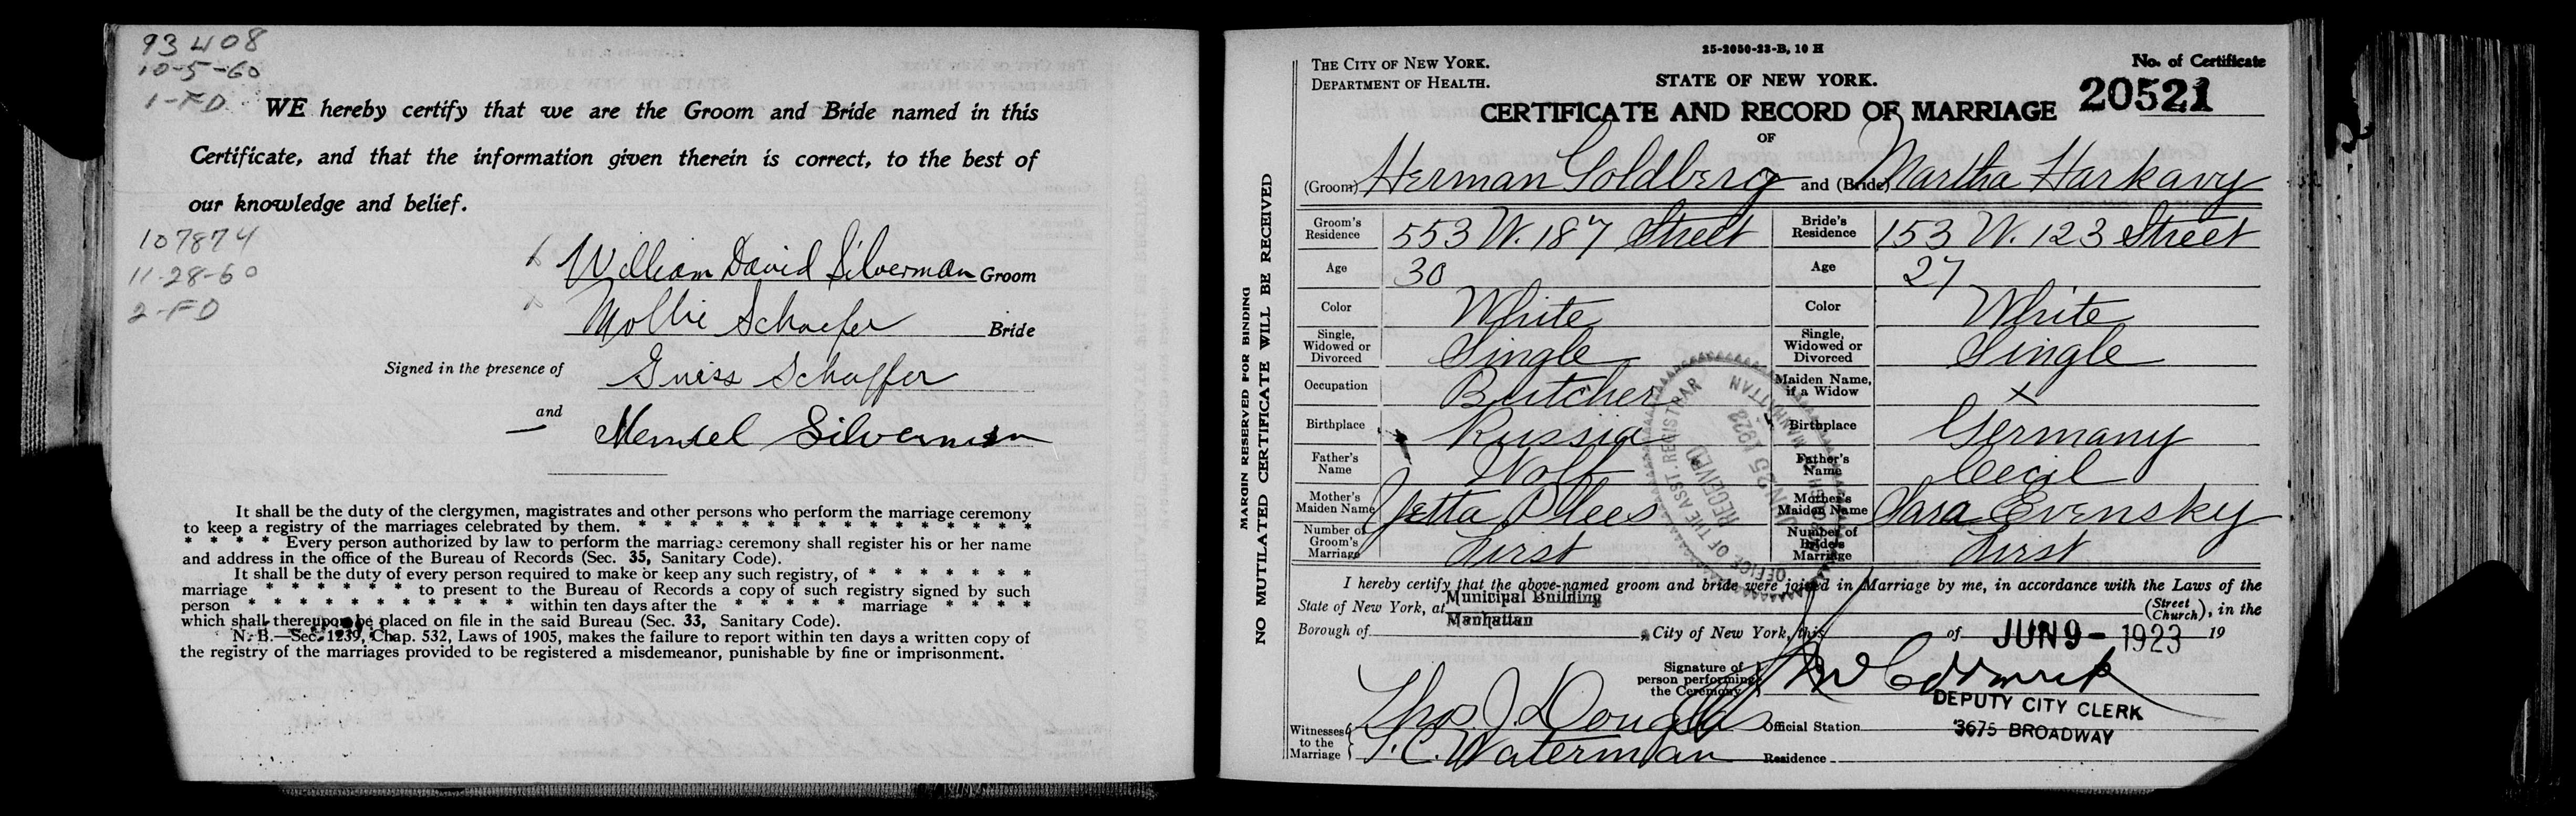 93408
10-5-60
1-FD
WE hereby certify that we are the Groom and Bride named in this
Certificate, and that the information given therein is correct, to the best of
our knowledge and belief.
107874
11-28-60
2-FD
William David Silverman Groom
Mollie Schaefer Bride
Signed in the presence of
Schaffer
and
Silverman
It shall be the duty of the clergymen, magistrates and other persons who perform the marriage ceremony
to keep a registry of the marriages celebrated by them. * * * * * * * * * * * * * * *
* * * * Every person authorized by law to perform the marriage ceremony shall register his or her name
and address in the office of the Bureau of Records (Sec. 35, Sanitary Code).
It shall be the duty of every person required to make or keep any such registry, of * * * * * * *
marriage * * * * * * * to present to the Bureau of Records a copy of such registry signed by such
person * * * * * * * * * * * within ten days after the * * * * * marriage * * * *
which shall thereupon be placed on file in the said Bureau (Sec. 33, Sanitary Code).
N. B.—Sec. 1239, Chap. 532, Laws of 1905, makes the failure to report within ten days a written copy of
the registry of the marriages provided to be registered a misdemeanor, punishable by fine or imprisonment.
MARGIN RESERVED FOR BINDING
NO MUTILATED CERTIFICATE WILL BE RECEIVED
25-2050-23-B, 10 H
THE CITY OF NEW YORK.
DEPARTMENT OF HEALTH.
STATE OF NEW YORK.
No. of Certificate
20521
CERTIFICATE AND RECORD OF MARRIAGE
OF
(Groom) Herman Goldberg and (Bride) Martha Harkavy
Groom's Residence 553 W. 187 Street Bride's Residence 153 W. 123 Street
Age 30 Age 27
Color White Color White
Single, Widowed or Divorced Single Single, Widowed or Divorced Single
Occupation Butcher Maiden Name, if a Widow X
Birthplace Russia Birthplace Germany
Father's Name Wolf Father's Name Cecil
Mother's Maiden Name Yetta Mother's Maiden Name Sara Evensky
Number of Groom's Marriage First Number of Bride's Marriage First
OFFICE OF THE ASST. REGISTRAR
RECEIVED
JUN 25 1923
MANHATTAN
I hereby certify that the above-named groom and bride were joined in Marriage by me, in accordance with the Laws of the
State of New York, at Municipal Building (Street Church), in the
Borough of Manhattan, City of New York, this of JUN 9 - 1923 19
Signature of person performing the Ceremony
DEPUTY CITY CLERK
Witnesses to the Marriage Thos. J. Douglas Official Station 3675 BROADWAY
Waterman Residence